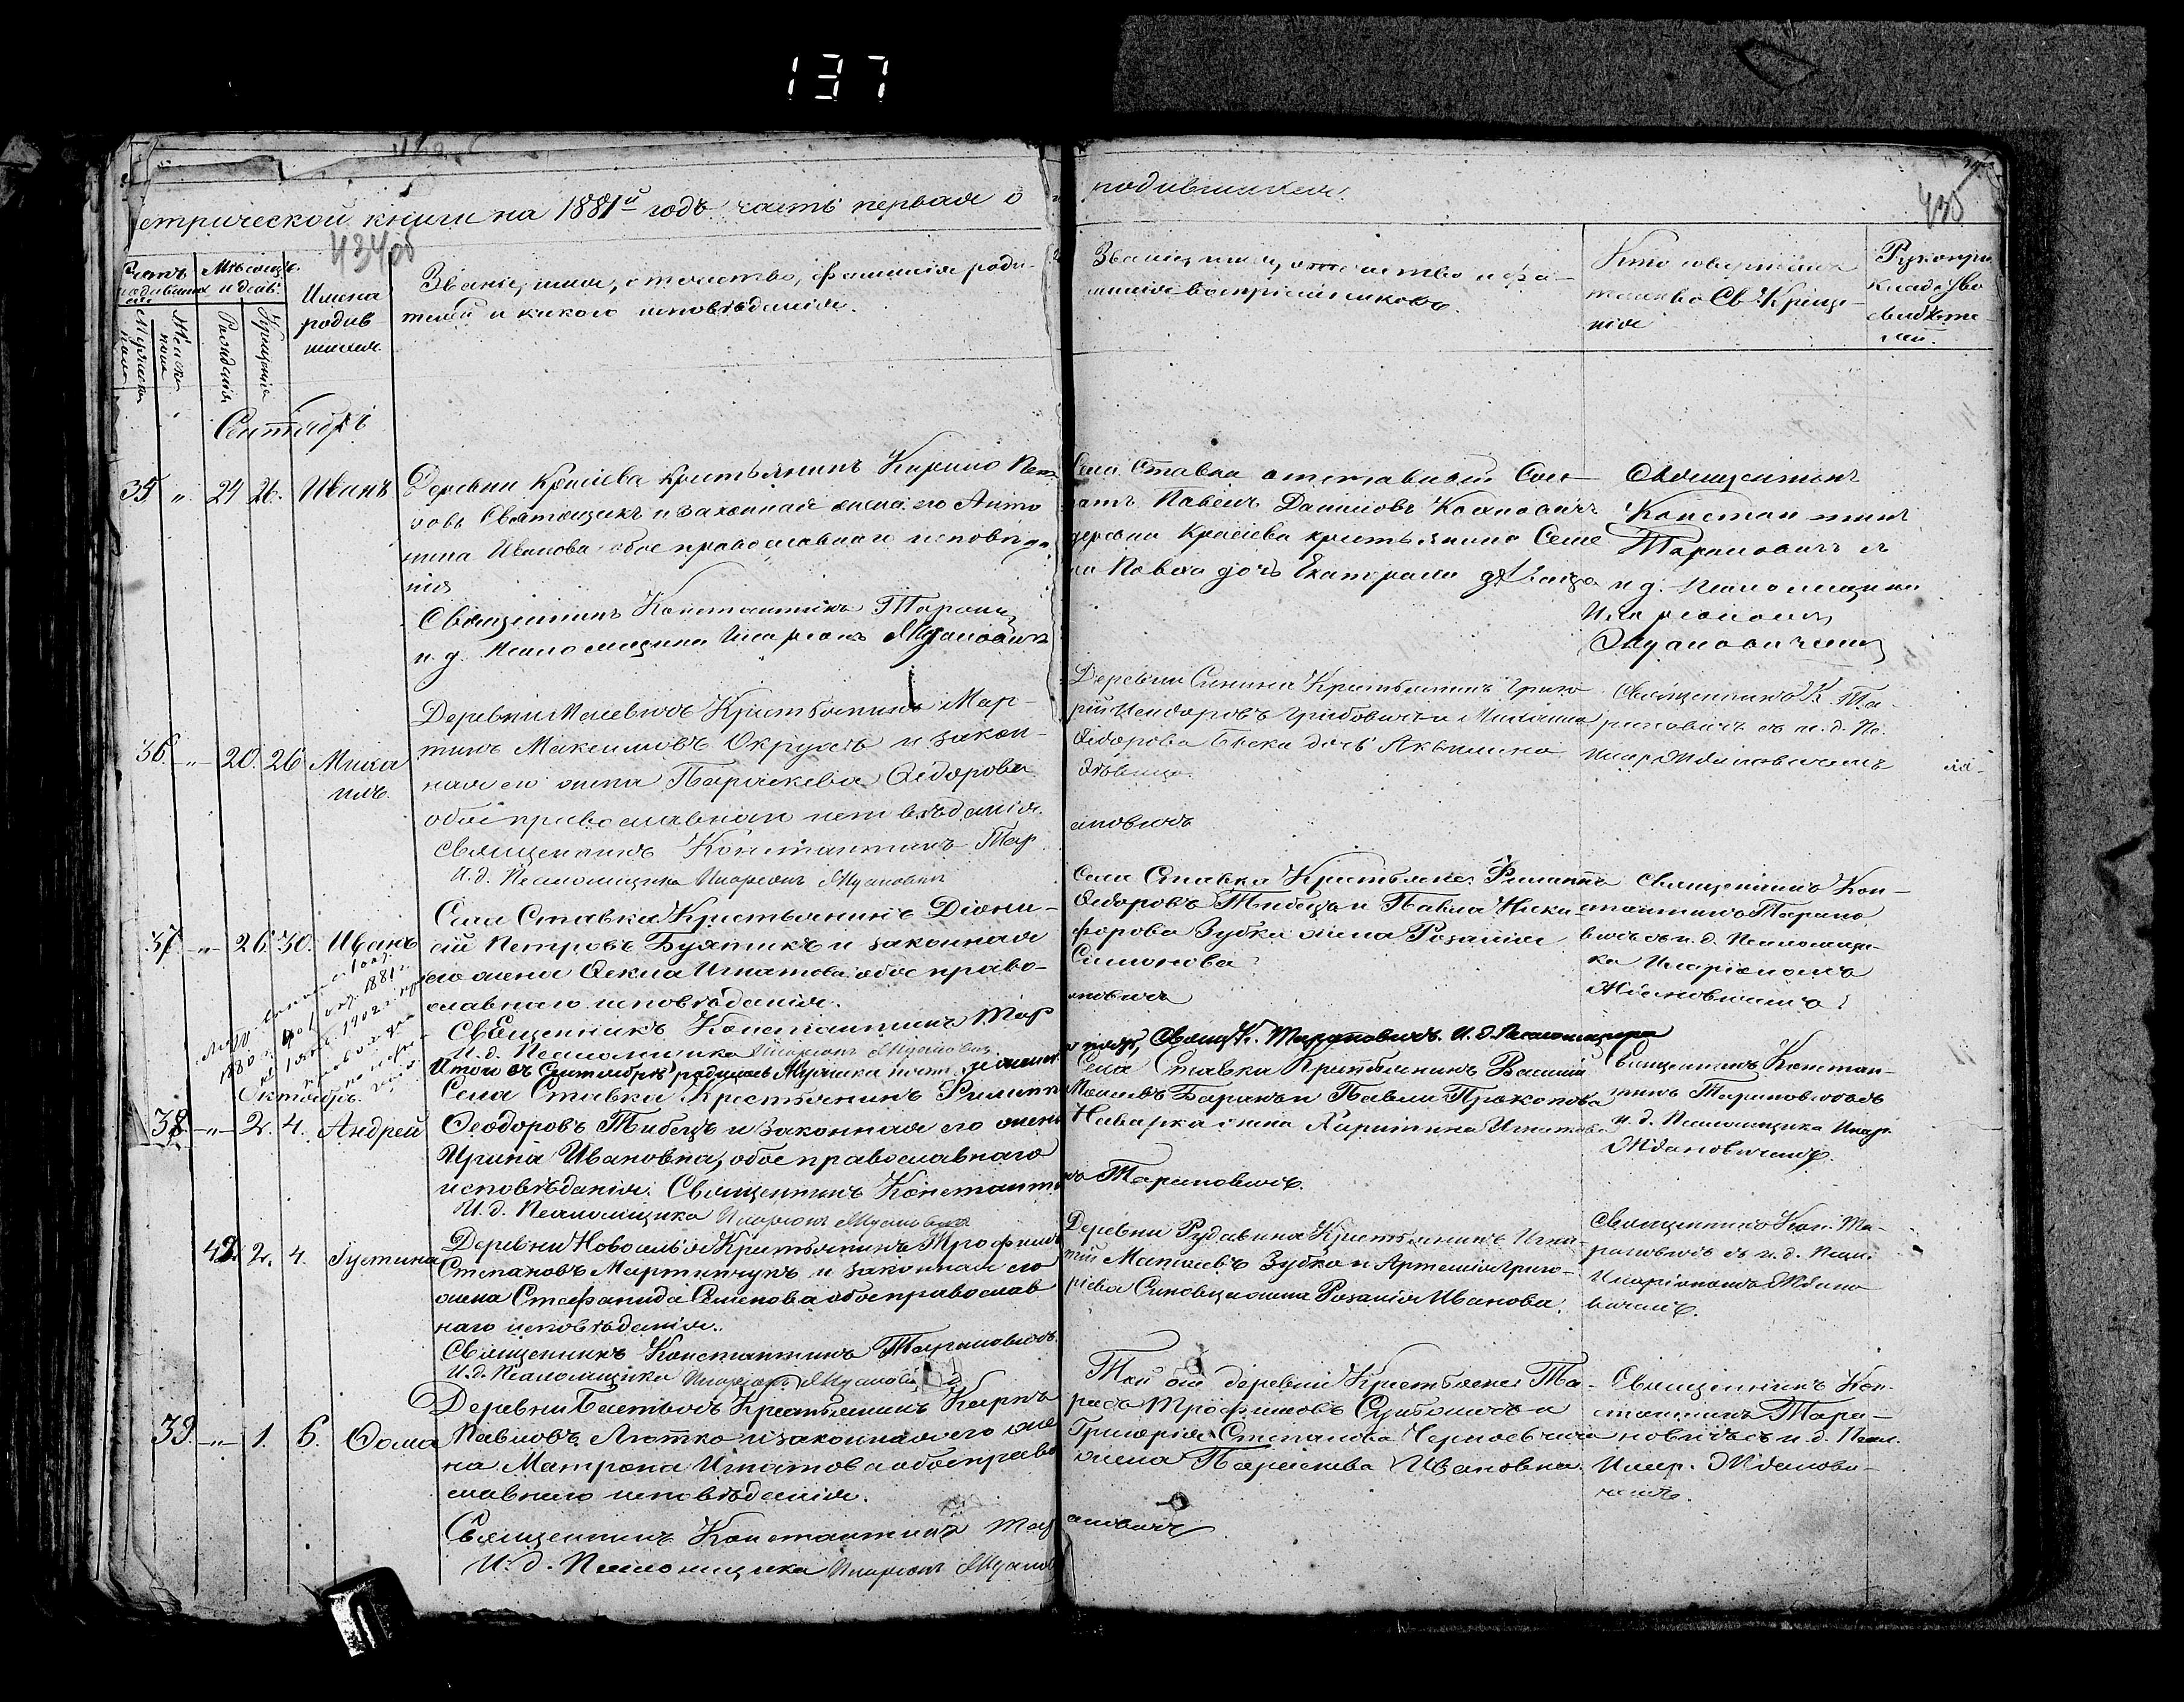 137
етрической книги на 1881й годъ часть первая о
родившихся.
434об
435
Счетъ родившихся
Мѣсяцъ и день
Мужеска пола
Женска пола
Рожденія
Крещенія
Имена
родив-
шихся
Званіе, имя, отчество, фамилія роди-
телей и какого исповѣданія.
Званіе, имя, отчество и фа-
милія воспріемниковъ.
Кто совершалъ
таинство Св. Креще-
нія
Рукопри
кладство
свидѣте
лей.
Сентябрь
35 " 24 26. Иванъ
Деревни Крысіева Крестьянинъ Кирило Пет
ровъ и законная жена его Анто
нина Иванова обое православнаго исповѣда
нія
Священникъ Константинъ Таран
и. д. Псаломщика Иларіонъ Ждановичъ
Села Ставка отставной Сол
датъ Павелъ Даниловъ
деревни крестьянина Семе
на дочь Екатерина дѣвица
Священникъ
Константинъ
Тарановичъ съ
и д. Псаломщикомъ
Иларіономъ
Ждановичемъ
36. -"- 20. 26 Миха
илъ.
Деревни Крестьянинъ Мар-
тинъ Максимовъ и закон-
ная его жена Параскева Ѳедорова
обое православнаго исповѣданія.
Священникъ Константинъ Тар
И. д. Псаломщика Иларіонъ Ждановичъ
Деревни Синина Крестьянинъ Григо
рій и
Ѳедорова дочь Акилина
дѣвица.
ановичъ
Священникъ К. Та-
рановичъ съ и. д. Пс.
Илар. Ждановичемъ
37. -"- 26. 30. Иванъ
Села Ставка Крестьянинъ Діони-
сій Петровъ Буятикъ и законная
его жена Ѳекла Игнатова обое право-
славнаго исповѣданія.
Священникъ Константинъ Тар
И. д. Псаломщика Иларіонъ Ждановичъ
Села Ставка Крестьяне: Филиппъ
Ѳедоровъ Тибецъ и Павла Ники-
форова Зубка жена Розалія
Симонова
ановичъ
Священникъ Кон-
стантинъ Тарано
вичъ съ и. д. Псаломщи-
ка Иларіономъ
Ждановичемъ
Итого въ Сентябрѣ родилось Мужеска
Священ К. Тарановичъ. И. д. Псаломщика
Октябрь.
38. -"- 2. 4. Андрей
Села Ставка Крестьянинъ Филиппъ
Ѳеодоровъ Тибецъ и законная его жена
Ирина Ивановна, обое православнаго
исповѣданія. Священникъ Константи
И. д. Псаломщика Иларіонъ Ждановичъ
Села Ставка Крестьянинъ Василій
Баранъ и Павла Прокопова
жена Харитина Игнатова
нъ Тарановичъ.
Священникъ Констан-
тинъ Тарановичъ съ
и. д. Псаломщика Илар.
Ждановичемъ.
42. 2. 4. Іустина
Деревни Новоселья Крестьянинъ Трофимъ
Степановъ Мартинчукъ и законная его
жена Стефанида Семенова обое православ
наго исповѣданія.
Священникъ Константинъ Тарановичъ.
И. д. Псаломщика Иларіонъ Ждановичъ
Деревни Рудавина Крестьянинъ Игна-
тій Матвѣевъ Зубко и Артемія Григо-
ріева Синовца жена Розалія Иванова.
Священникъ Кон. Та-
рановичъ съ и. д. Псал.
Иларіономъ Ждано
вичемъ.
39. -"- 1. 6. Ѳома
Деревни Крестьянинъ Карпъ
Павловъ Лютко и законная его же
на Матрона Игнатова обое право
славнаго исповѣданія.
Священникъ Константинъ Тар
И. д. Псаломщика Иларіонъ Жданов
Той же деревни Крестьяне Та-
расъ Трофимовъ и
Григорія Степанова
жена Параскева Ивановна.
ановичъ
Священникъ Кон-
стантинъ Тара-
новичъ съ и. д. Псал.
Илар. Жданови-
чемъ.